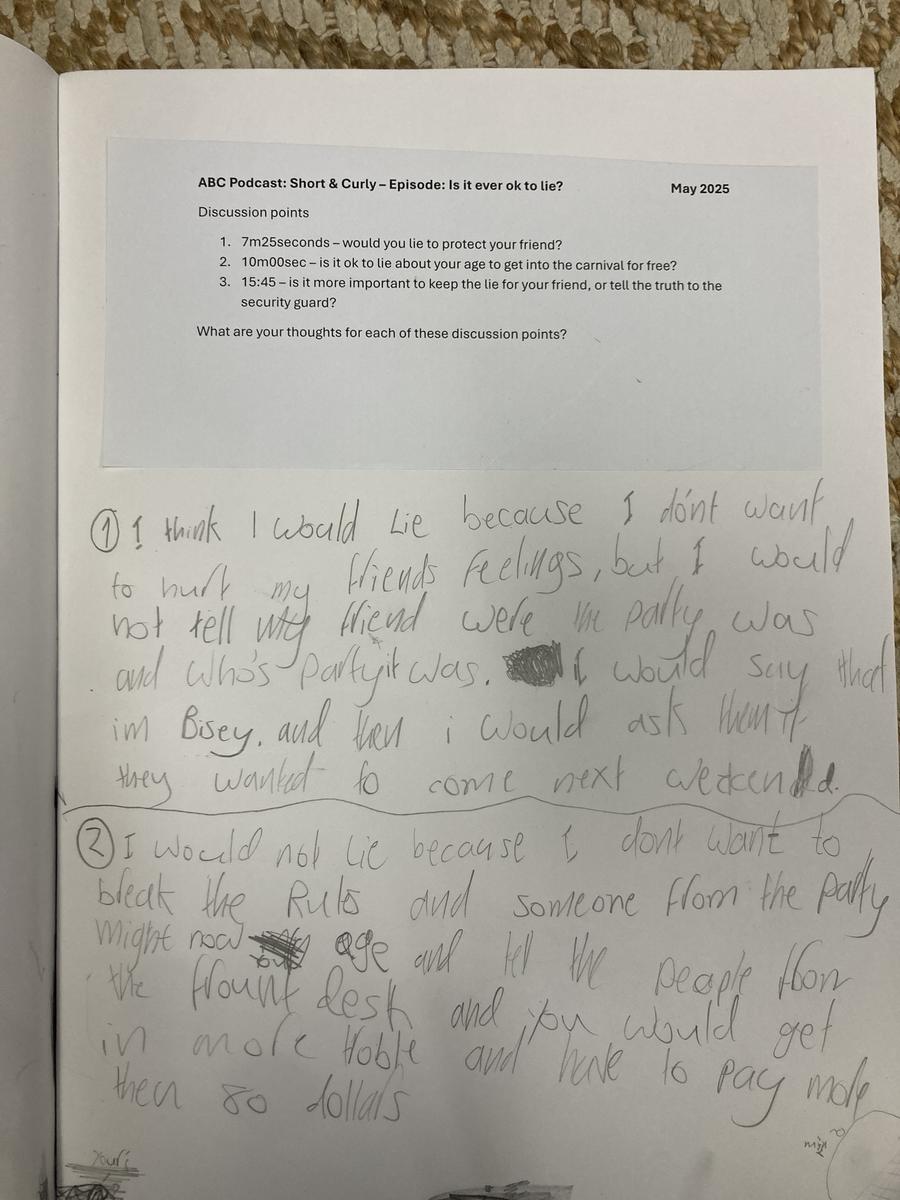 ABC Podcast: Short & Curly – Episode: Is it ever ok to lie? May 2025
Discussion points
1. 7m25seconds – would you lie to protect your friend?
2. 10m00sec – is it ok to lie about your age to get into the carnival for free?
3. 15:45 – is it more important to keep the lie for your friend, or tell the truth to the
security guard?
What are your thoughts for each of these discussion points?
① I think I would Lie because I don't want
to hurt my friends feelings, but I would
not tell my friend were the party was
and who's party it was. I would say that
im Bisey. and then i would ask them if
they wanted to come next weekend.
② I would not lie because I dont want to
break the Ruls and someone from the party
might now your age and tell the people from
the frount desk and you would get
in more troble and have to pay more
then 80 dollars
your